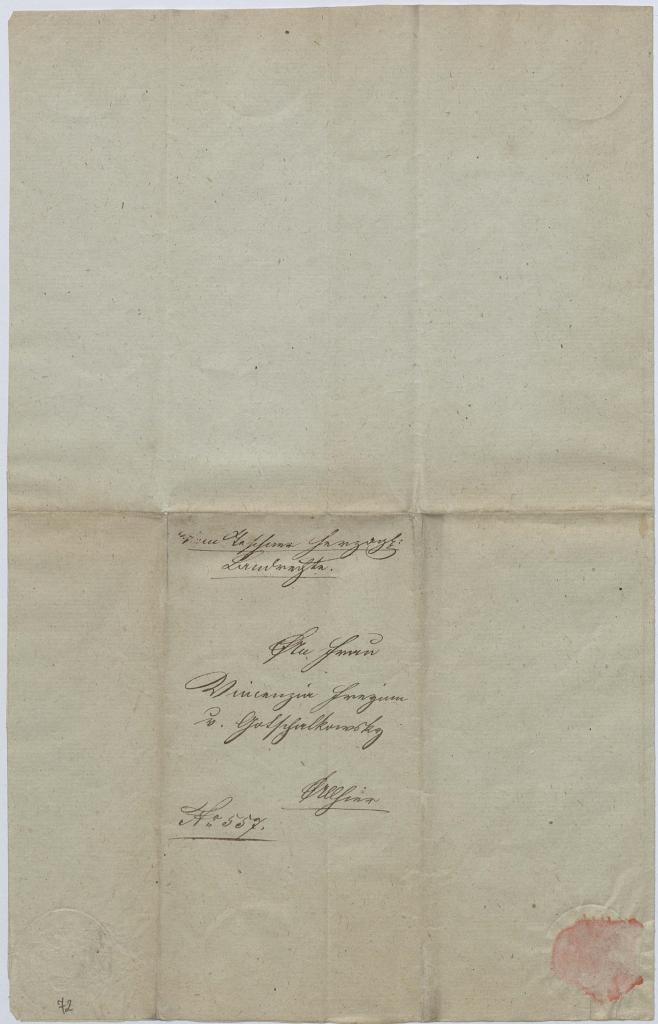 Vom Teschner herzogl:
Landrechte.
An Frau
Vincenzia Freyinn
v. Gotschalkowsky
Allhier
No 557.
72